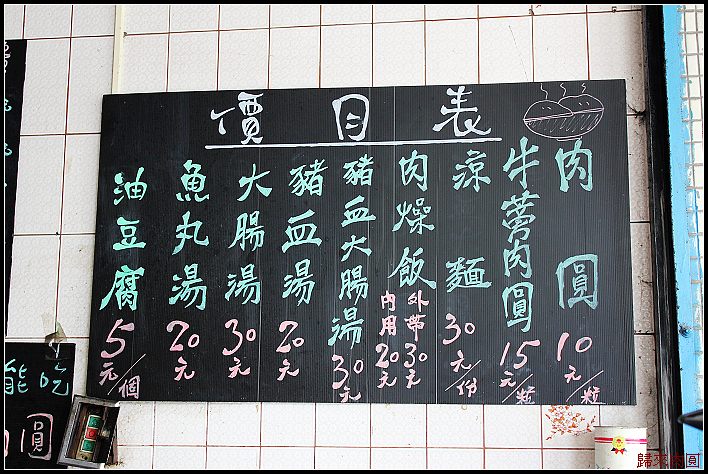 價目表
肉圓 10元/粒
牛蒡肉圓 15元/粒
涼麵 30元/份
肉燥飯 外帶30元 內用20元
豬血大腸湯 30元
豬血湯 20元
大腸湯 30元
魚丸湯 20元
油豆腐 5元/個
能吃
圓
歸來肉圓